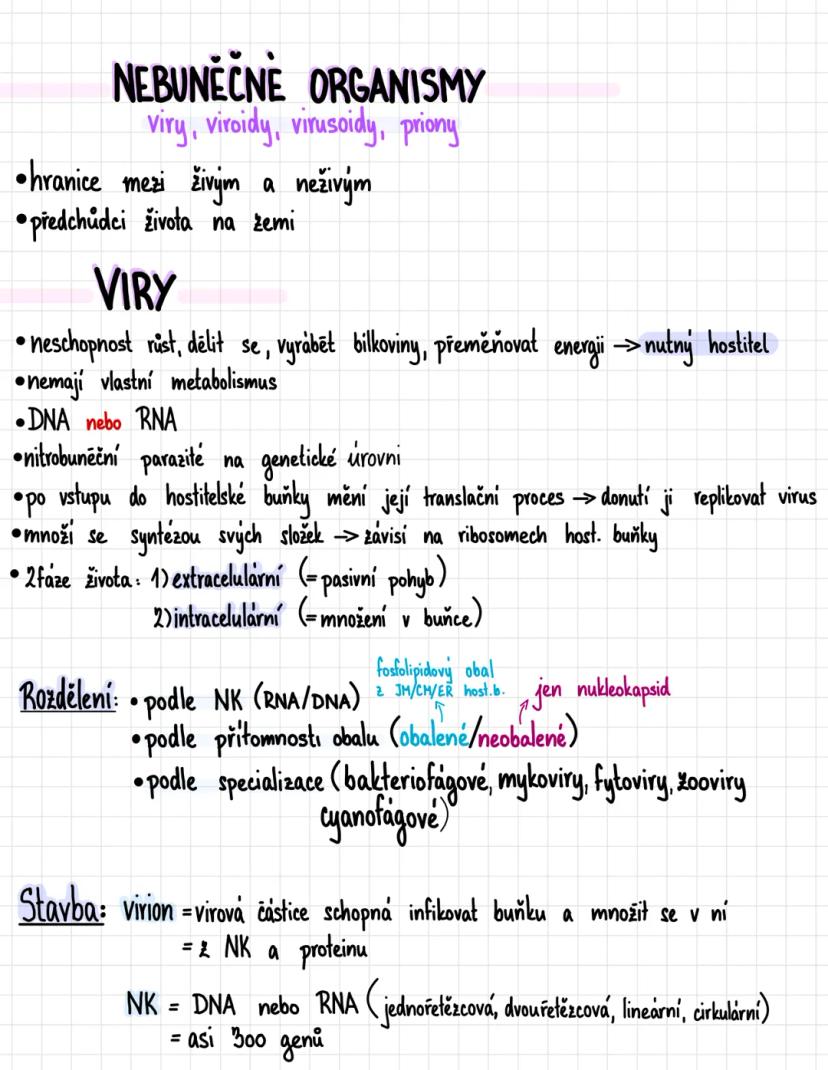 NEBUNĚČNÉ ORGANISMY
viry, viroidy, virusoidy, priony
•hranice mezi živým a neživým
•předchůdci života na zemi
VIRY
•neschopnost růst, dělit se, vyrábět bílkoviny, přeměňovat energii →nutný hostitel
•nemají vlastní metabolismus
•DNA nebo RNA
•nitrobuněční parazité na genetické úrovni
•po vstupu do hostitelské buňky mění její translační proces → donutí ji replikovat virus
•množí se syntézou svých složek → závisí na ribosomech host. buňky
• 2 fáze života: 1) extracelulární (= pasivní pohyb)
2) intracelulární (= množení v buňce)
fosfolipidový obal
z JM/CM/ER host.b.
jen nukleokapsid
Rozdělení: • podle NK (RNA/DNA)
•podle přítomnosti obalu (obalené/neobalené)
•podle specializace (bakteriofágové, mykoviry, fytoviry, zooviry
cyanofágové)
Stavba: virion = virová částice schopná infikovat buňku a množit se v ní
= z NK a proteinu
NK = DNA nebo RNA (jednořetězcová, dvouřetězcová, lineární, cirkulární)
= asi 300 genů